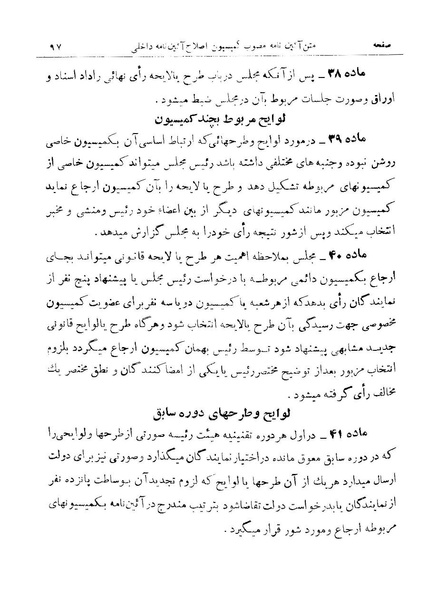 صفحه متن آئین نامه مصوب کمیسیون اصلاح آئین نامه داخلی ۹۷
ماده ۳۸ ـ پس از آنکه مجلس درباب طرح یا لایحه رأی نهائی را داد اسناد و
اوراق وصورت جلسات مربوط بآن درمجلس ضبط میشود .
لوایح مربوط بچند کمیسیون
ماده ۳۹ ـ درمورد لوایح وطرحهائی که ارتباط اساسی آن بکمیسیون خاصی
روشن نبوده وجنبه های مختلفی داشته باشد رئیس مجلس میتواند کمیسیون خاصی از
کمیسیونهای مربوطه تشکیل دهد و طرح یا لایحه را بآن کمیسیون ارجاع نماید
کمیسیون مزبور مانند کمیسیونهای دیگر از بین اعضاء خود رئیس ومنشی و مخبر
انتخاب میکند و پس از شور نتیجه رأی خود را به مجلس گزارش میدهد .
ماده ۴۰ ـ مجلس بملاحظه اهمیت هر طرح یا لایحه قانونی میتواند بجای
ارجاع بکمیسیون دائمی مربوطه با درخواست رئیس مجلس یا پیشنهاد پنج نفر از
نمایندگان رأی بدهد که از هر شعبه یا کمیسیون دو یا سه نفر برای عضویت کمیسیون
مخصوصی جهت رسیدگی بآن طرح یالایحه انتخاب شود وهرگاه طرح یالوایح قانونی
جدید مشابهی پیشنهاد شود توسط رئیس بهمان کمیسیون ارجاع میگردد بلزوم
انتخاب مزبور بعد از توضیح مختصر رئیس یا یکی از امضا کنندگان و نطق مختصر یک
مخالف رأی گرفته میشود .
لوایح وطرحهای دوره سابق
ماده ۴۱ ـ در اول هر دوره تقنینیه هیئت رئیسه صورتی از طرحها ولوایحی را
که در دوره سابق معوق مانده دراختیار نمایندگان میگذارد وصورتی نیز برای دولت
ارسال میدارد هر یک از آن طرحها یا لوایح که لزوم تجدید آن بوساطت پانزده نفر
از نمایندگان یا بدرخواست دولت تقاضا شود بترتیب مندرج در آئین نامه بکمیسیونهای
مربوطه ارجاع ومورد شور قرار میگیرد .